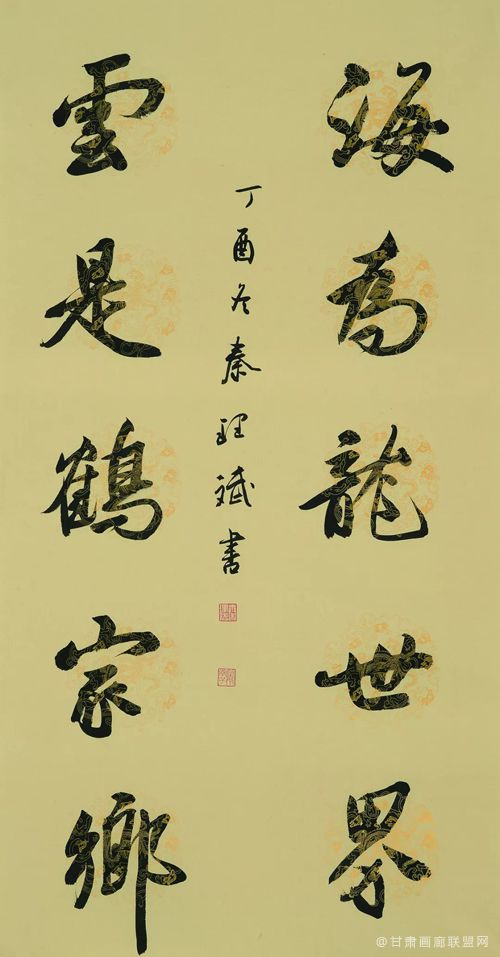 海為龍世界
雲是鶴家鄉
丁酉冬秦理斌書
@甘肃画廊联盟网